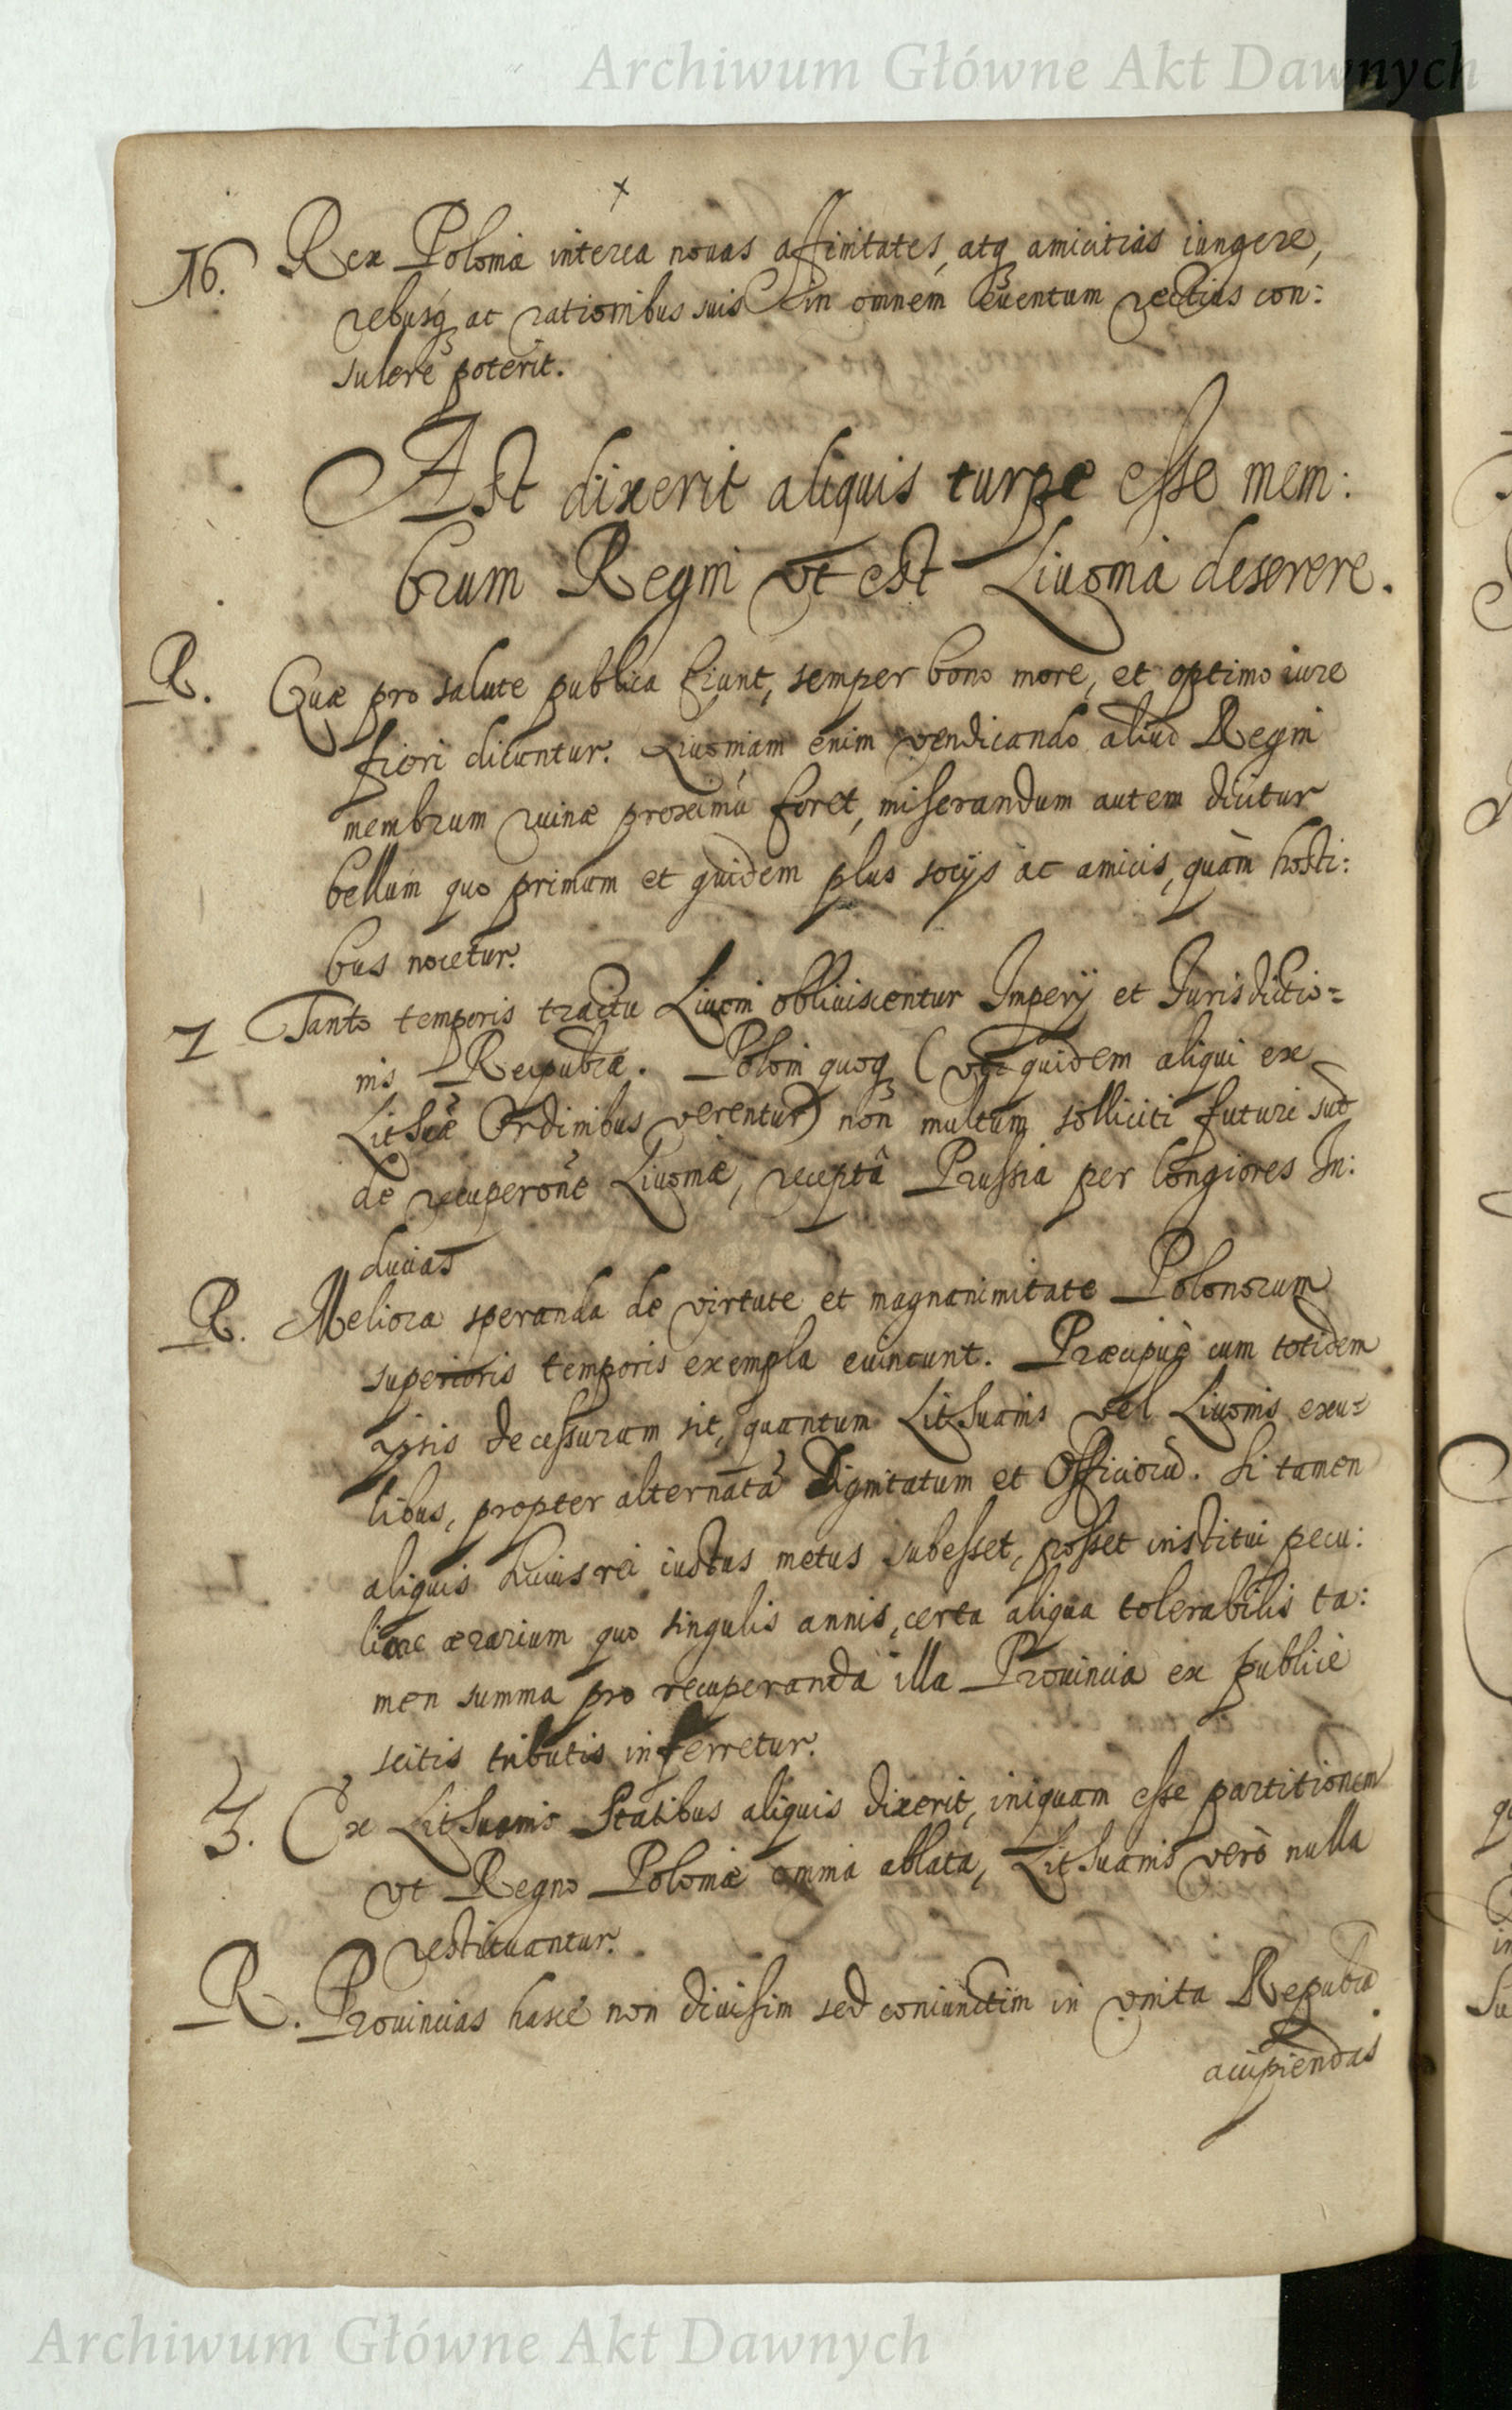 Archiwum Główne Akt Dawnych
16. Rex Poloniæ interea nouas affinitates, atq amicitias iungere,
rebusq ac rationibus suis in omnem euentum rectius con:
sulere poterit.
Ast dixerit aliquis turpe esse mem:
brum Regni vt est Liuonia deserere.
R. Quæ pro salute publica fiunt, semper bono more, et optimo iure
fieri dicuntur. Liuoniam enim vendicando aliud Regni
membrum ruinæ proximũ foret, miserandum autem dicitur
bellum quo primum et quidem plus socijs ac amicis, quàm hosti:
bus nocetur.
2 Tanto temporis tractu Liuoni obliuiscentur Imperij et Jurisdictio=
nis Reipubcæ. Poloni quoq (vt quidem aliqui ex
Lithcæ Ordinibus verentur) non multum solliciti futuri sũt
de recuperõne Liuoniæ, receptâ Prussia per longiores In:
ducias
R. Meliora speranda de virtute et magnanimitate Polonorum
superioris temporis exempla euincunt. Præcipuè cum totidem
ipsis decessurum sit, quantum Lithuanis vel Liuonis exu=
libus, propter alternatã Dignitatum et Officiorũ. Si tamen
aliquis huius rei iustus metus subesset, posset institui pecu:
liare ærarium quo singulis annis, certa aliqua tolerabilis ta:
men summa pro recuperanda illa Prouincia ex publice
scitis tributis inferretur.
3. Ex Lithuanis Statibus aliquis dixerit, iniquam esse partitionem
vt Regno Poloniæ omnia ablata, Lithuanis verò nulla
restituantur.
R. Prouincias hasce non diuisim sed coniunctim in vnita Repubca
accipiendas
Archiwum Główne Akt Dawnych